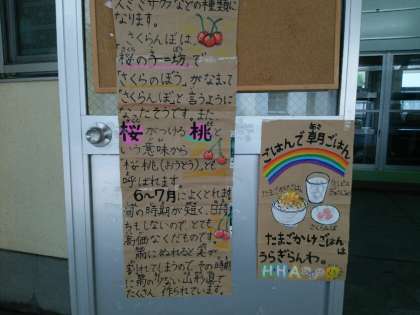 大きさサクなどの種類に
なります。
さくらんぼは、
桜の子=坊、で
「さくらのぼう」がなまって
「さくらんぼ」と言うように
なったそうです。また
桜がつける桃と
いう意味から
「桜桃(おうとう)」とも
呼ばれます。
6〜7月によくとれ
の時期が短く、日持
ちもしないので とても
高価なくだものです。
雨にぬれると実が
割れてしまうので、その時期
に雨の少ない山形県で
たくさん作られています。
ごはんで朝ごはん
たまごかけごはん
さくらんぼ
たまごかけごはんは
うらぎらんわ。
HHA